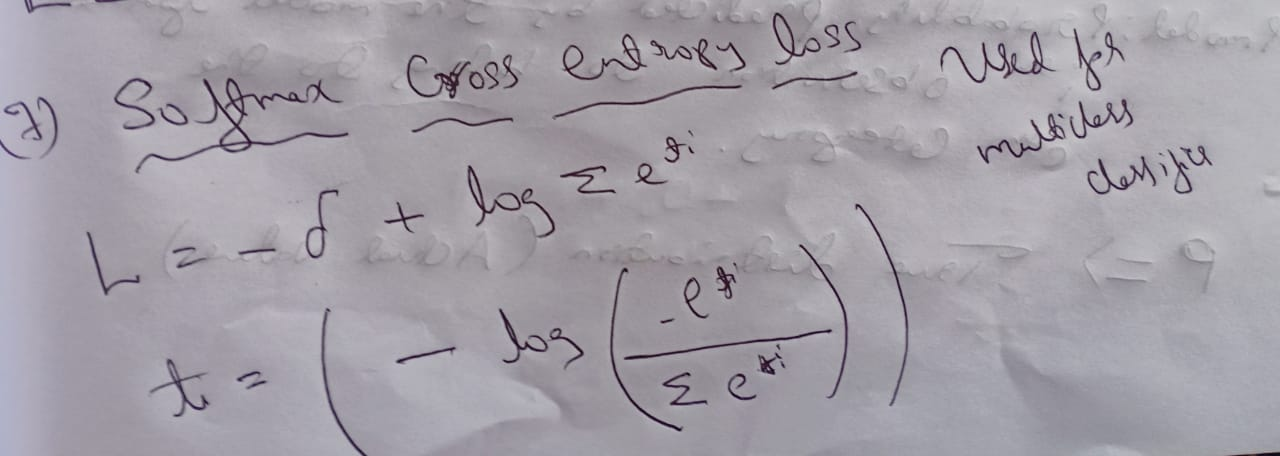 7) Softmax Cross entropy loss Used for
multiclass
classifier
L = - f + log Σ e^{fi}
t = ( - log ( -e^{fi} / Σ e^{fi} ) )